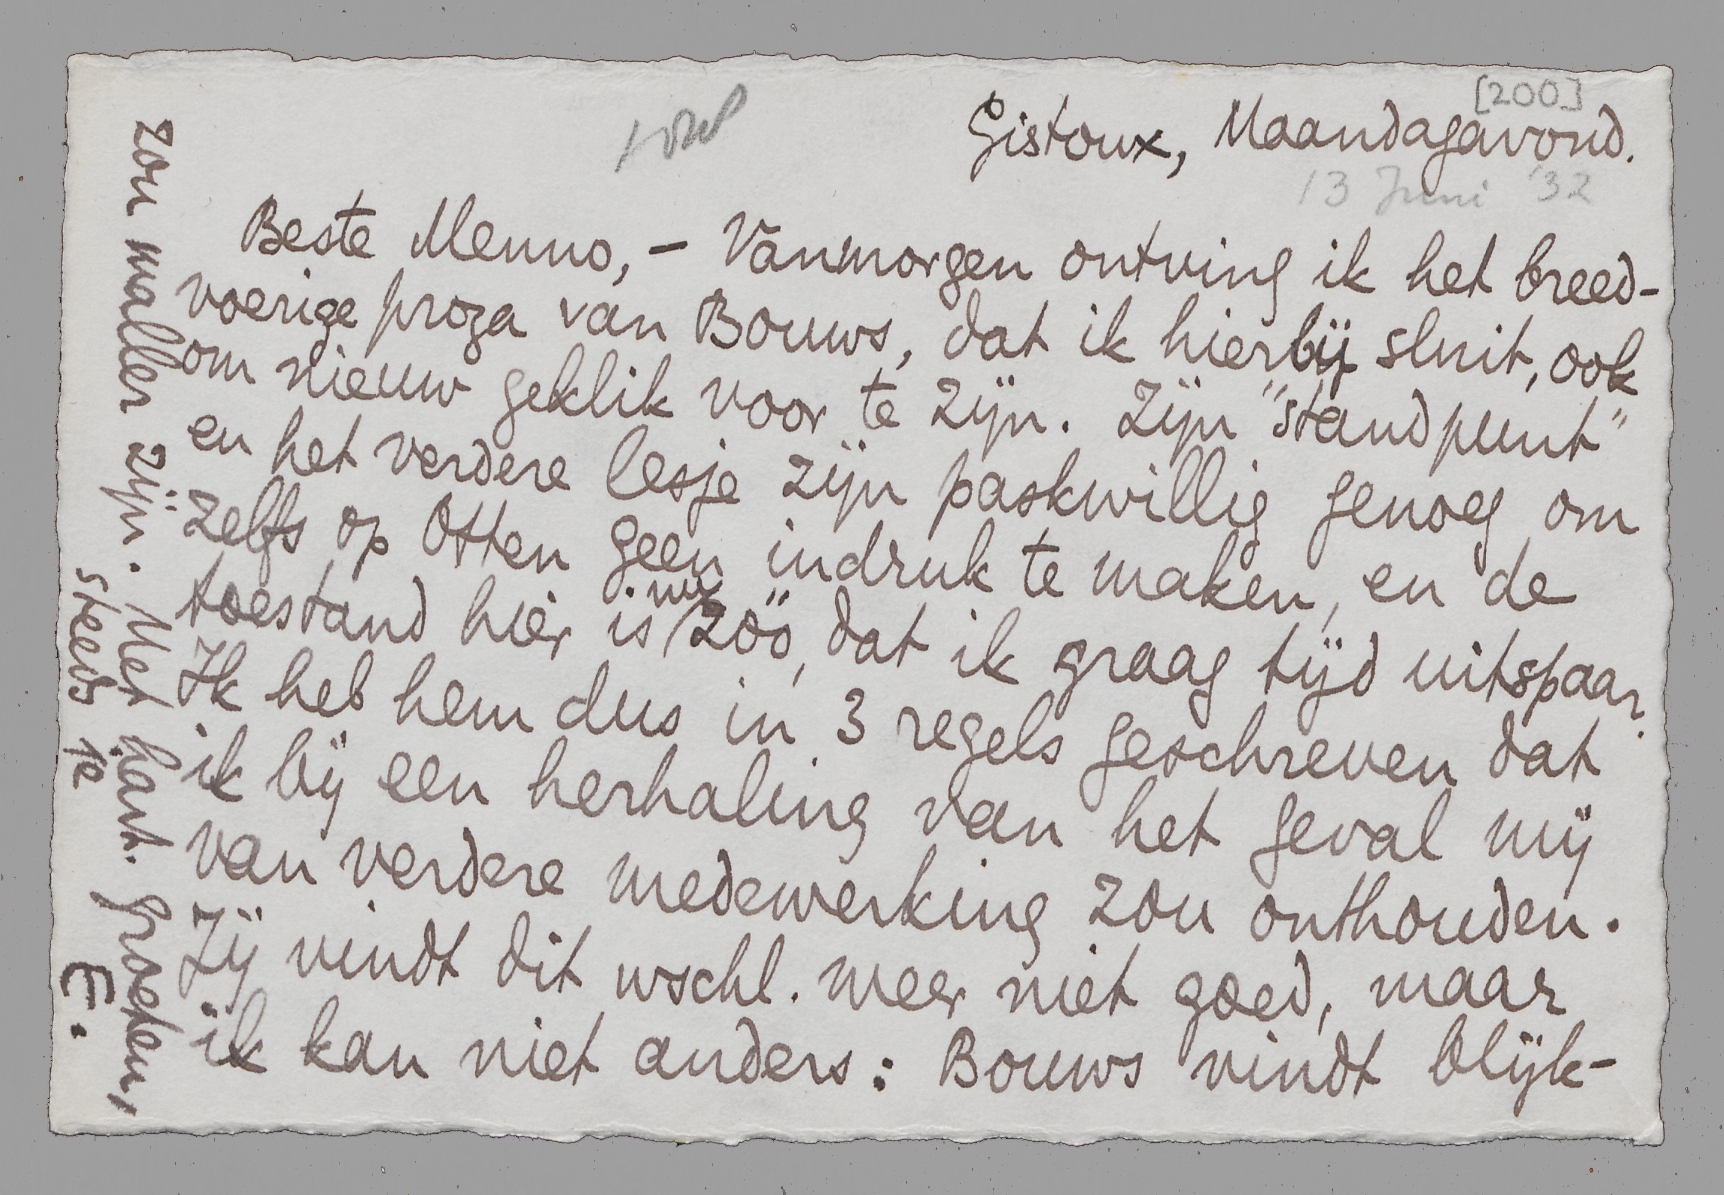 [200]
Gistoux, Maandagavond.
13 Juni '32
Beste Menno, – Vanmorgen ontving ik het breed-
voerige proza van Bouws, dat ik hierbij sluit, ook
om nieuw geklik voor te zijn. Zijn "standpunt"
en het verdere lesje zijn paskwillig genoeg om
zelfs op Otten geen indruk te maken, en de
toestand hier is nu zóó, dat ik graag tijd uitspaar.
Ik heb hem dus in 3 regels geschreven dat
ik bij een herhaling van het geval mij
van verdere medewerking zou onthouden.
Jij vindt dit wschl. weer niet goed, maar
ik kan niet anders: Bouws vindt blijk-
zou maller zijn. Met hart. groeten,
steeds je
E.